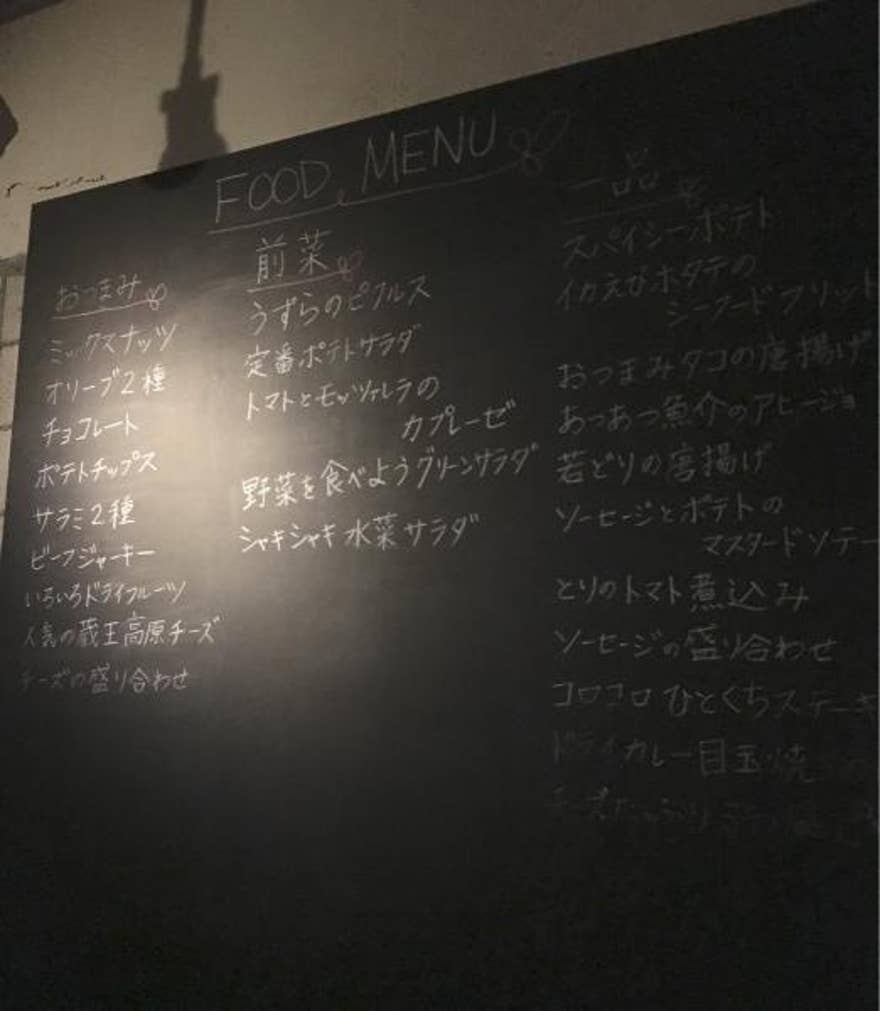 FOOD MENU
おつまみ
ミックスナッツ
オリーブ2種
チョコレート
ポテトチップス
サラミ2種
ビーフジャーキー
いろいろドライフルーツ
人気の蔵王高原チーズ
チーズの盛り合わせ
前菜
うずらのピクルス
定番ポテトサラダ
トマトとモッツァレラの
カプレーゼ
野菜を食べようグリーンサラダ
シャキシャキ水菜サラダ
一品
スパイシーポテト
イカえびホタテの
シーフードフリット
おつまみタコの唐揚げ
あつあつ魚介のアヒージョ
若どりの唐揚げ
ソーセージとポテトの
マスタードソテー
とりのトマト煮込み
ソーセージの盛り合わせ
コロコロひとくちステーキ
ドライカレー目玉焼
チーズたっぷり